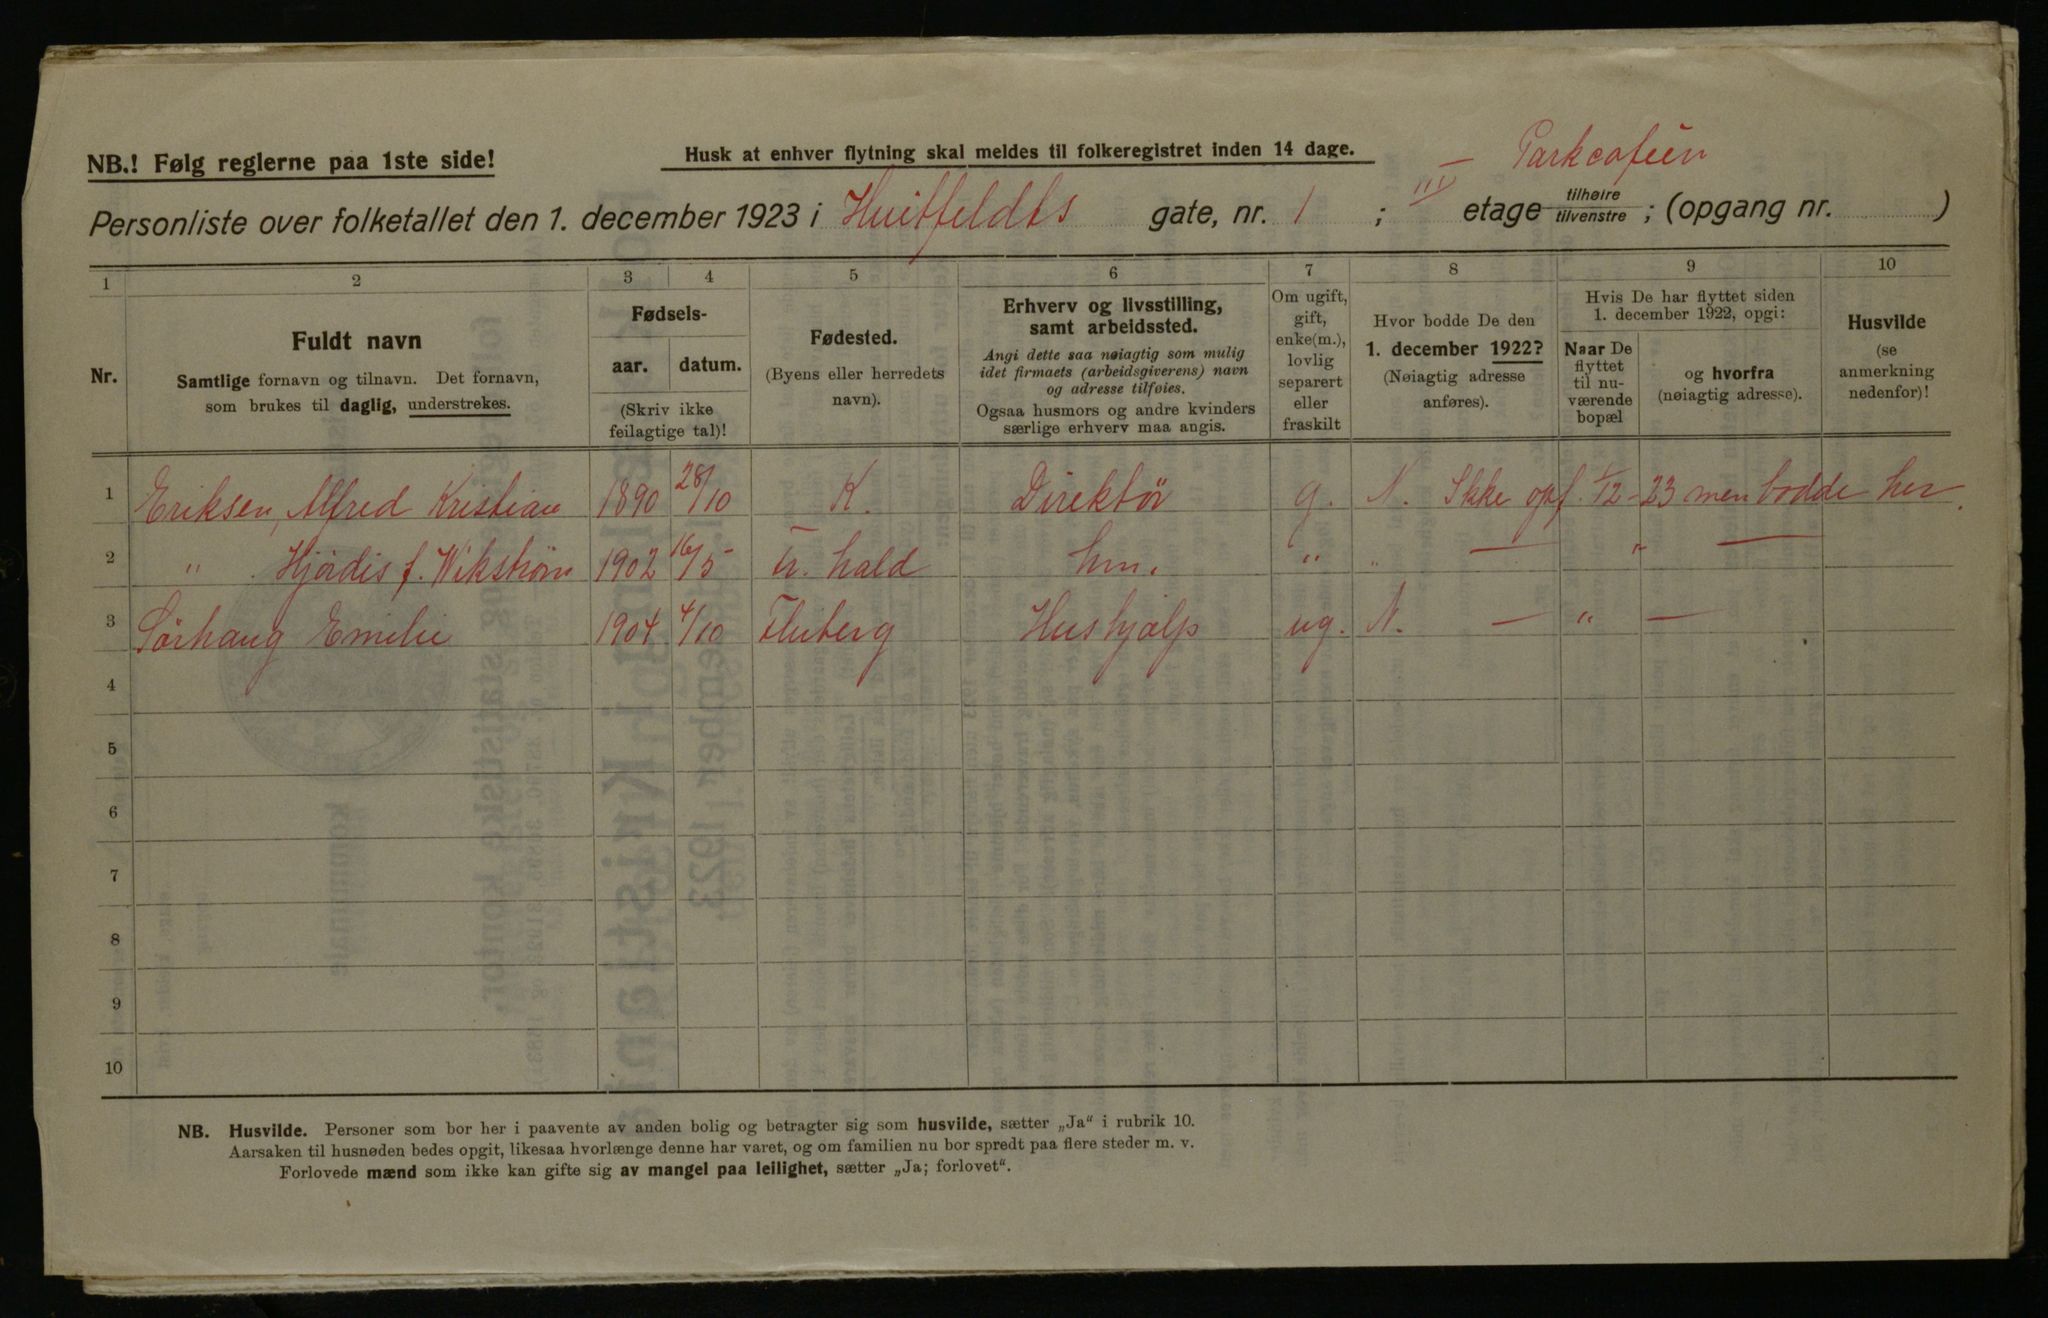 NB.! Følg reglerne paa 1ste side!
Husk at enhver flytning skal meldes til folkeregistret inden 14 dage.
Parkcaféen
Personliste over folketallet den 1. december 1923 i Huitfeldts gate, nr. 1 ; III etage tilhøire tilvenstre ; (opgang nr. )
1 2 3 4 5 6 7 8 9 10
Nr.
Fuldt navn
Samtlige fornavn og tilnavn. Det fornavn,
som brukes til daglig, understrekes.
Fødsels-
aar. datum.
(Skriv ikke
feilagtige tal)!
Fødested.
(Byens eller herredets
navn).
Erhverv og livsstilling,
samt arbeidssted.
Angi dette saa nøiagtig som mulig
idet firmaets (arbeidsgiverens) navn
og adresse tilføies.
Ogsaa husmors og andre kvinders
særlige erhverv maa angis.
Om ugift,
gift,
enke(m.),
lovlig
separert
eller
fraskilt
Hvor bodde De den
1. december 1922?
(Nøiagtig adresse
anføres).
Hvis De har flyttet siden
1. december 1922, opgi:
Naar De
flyttet
til nu-
værende
bopæl
og hvorfra
(nøiagtig adresse).
Husvilde
(se
anmerkning
nedenfor)!
1 Eriksen, Alfred Kristian 1890 28/10 K. Direktör g. N. Ikke opf. 1/12-23 men bodde her.
2 " Hjördis f. Wikström 1902 16/5 Fr. hald hm. " " — " —
3 Sörhaug Emilie 1904 4/10 Fluberg Hushjælp ug. N. — " —
4
5
6
7
8
9
10
NB. Husvilde. Personer som bor her i paavente av anden bolig og betragter sig som husvilde, sætter „Ja“ i rubrik 10.
Aarsaken til husnøden bedes opgit, likesaa hvorlænge denne har varet, og om familien nu bor spredt paa flere steder m. v.
Forlovede mænd som ikke kan gifte sig av mangel paa leilighet, sætter „Ja; forlovet“.